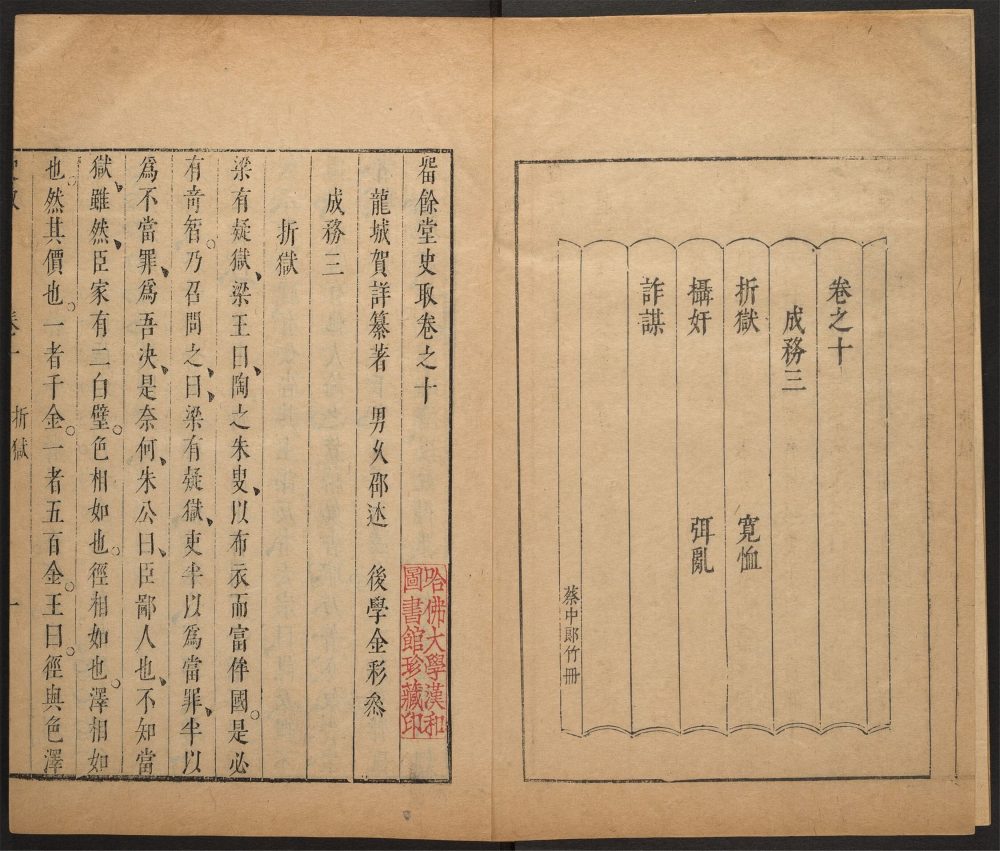 卷之十
成務三
折獄　寬恤
攝奸　弭亂
詐謀
蔡中郎竹冊
畱餘堂史取卷之十
龍城賀詳纂著　男夊邵述　後學金彩叅
哈佛大學漢和
圖書館珍藏印
成務三
折獄
梁有疑獄、梁王曰、陶之朱叟、以布衣而富侔國。是必
有竒智。乃召問之、曰、梁有疑獄、吏半以爲當罪、半以
爲不當罪、爲吾决、是奈何、朱公曰、臣鄙人也、不知當
獄、雖然、臣家有二白璧。色相如也。徑相如也。澤相如
也。然其價也。一者千金。一者五百金。王曰。徑與色澤
折獄
一